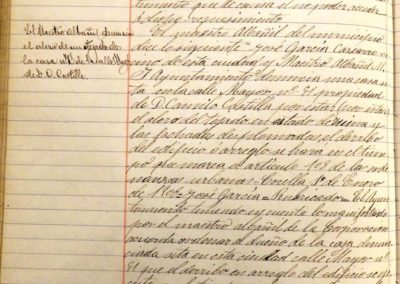 El Maestro Albañil denuncia
el alero de un tejado de
la casa Nº de la calle Mayor
de D. C. Castilla.
á dicho requerimiento
El maestro Albañil del municipio
dice lo siguiente "José García
no de esta ciudad y Maestro Albañil
Ayuntamiento denuncia una casa
en la calle Mayor nº 81 propiedad
de D. Camilo Castilla por estar (por estar)
el alero del tejado en estado de ruina y
las fachadas desplomadas, el derribo
de edificio o arreglo se hará en el tiem
po que marca el artículo de la orde
nanzas urbanas = Corella 1º de Enero
de José García = Rubricado = El Ayun
tamiento teniendo en cuenta lo manifestado
por el maestro albañil de la Corporación
acuerda ordenar al dueño de la casa denun
ciada sita en esta ciudad calle Mayor nº
81 que el derribo en arreglo del edificio